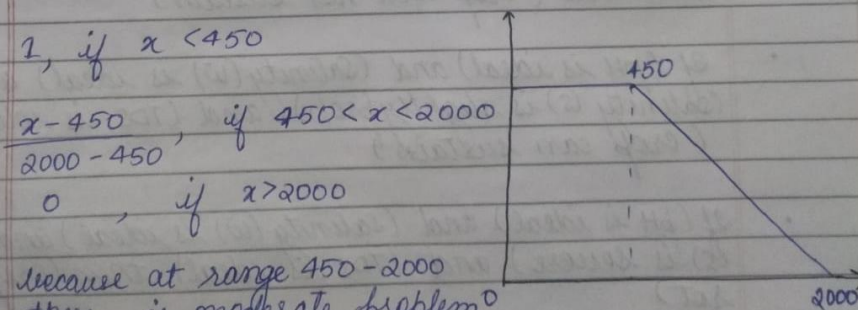 1, if x < 450
x - 450 / 2000 - 450, if 450 < x < 2000
0, if x > 2000
because at range 450 - 2000
problem
450
0
2000